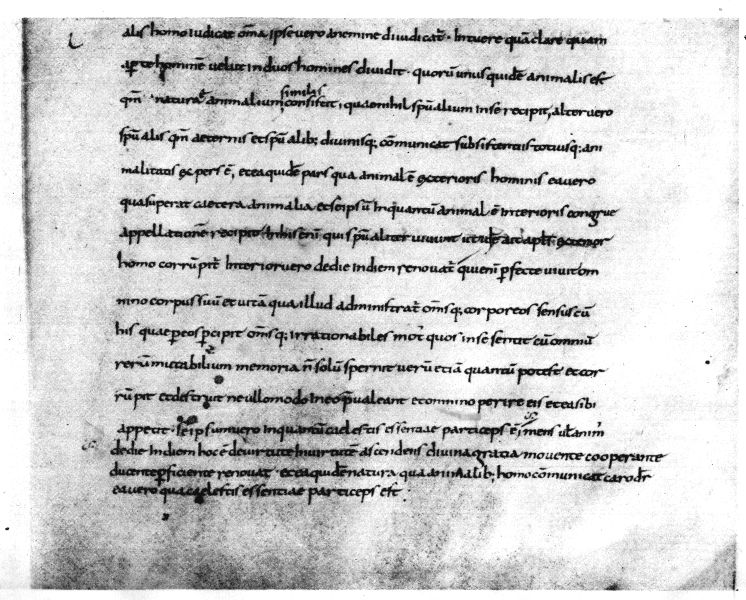 alis homo iudicat om̄a ipse vero a nemine diiudicat̄. Intuere quā clare quam
aperte hominē velut in duos homines dividit. quorū unus quidē animalis est
qm̄ naturae animalium similis consistit, quae nihil spūalium in se recipit, alter vero
spūalis qm̄ aeternis et spūalib; divinisq; cōmunicat subsistentiis totiusq; ani
malitatis expers ē, et ea quidē pars qua animal ē exterioris hominis ea vero
qua superat caetera animalia et seipsū inquantū animal ē interioris congrue
appellationē recipit In his enī qui spūaliter vivunt ut idē ait apłs exterior
homo corrūpit̄ Interior vero de die in diem renovat̄ qui enī perfecte vivit om
nino corpus suū et vitā qua illud administrat̄ om̄sq; corporeos sensus cū
his quae per eos percipit om̄sq; irrationabiles mot quos in se sentit cū omniū
rerū mutabilium memoria n̄ solū spernit verū etiā quantū potest et cor
rūpit et destruit ne ullo modo in eo praevaleant et omnino perire eis et ea sibi
appetit. Se ipsum vero inquantū caelestis essentiae particeps ē
de die in diem hoc ē de virtute in virtutē ascendens divina gratia movente cooperante
ducente perficiente renovat. et ea quidē natura qua animalib; homo cōmunicat caro dr̄
ea vero qua caelestis essentiae particeps est